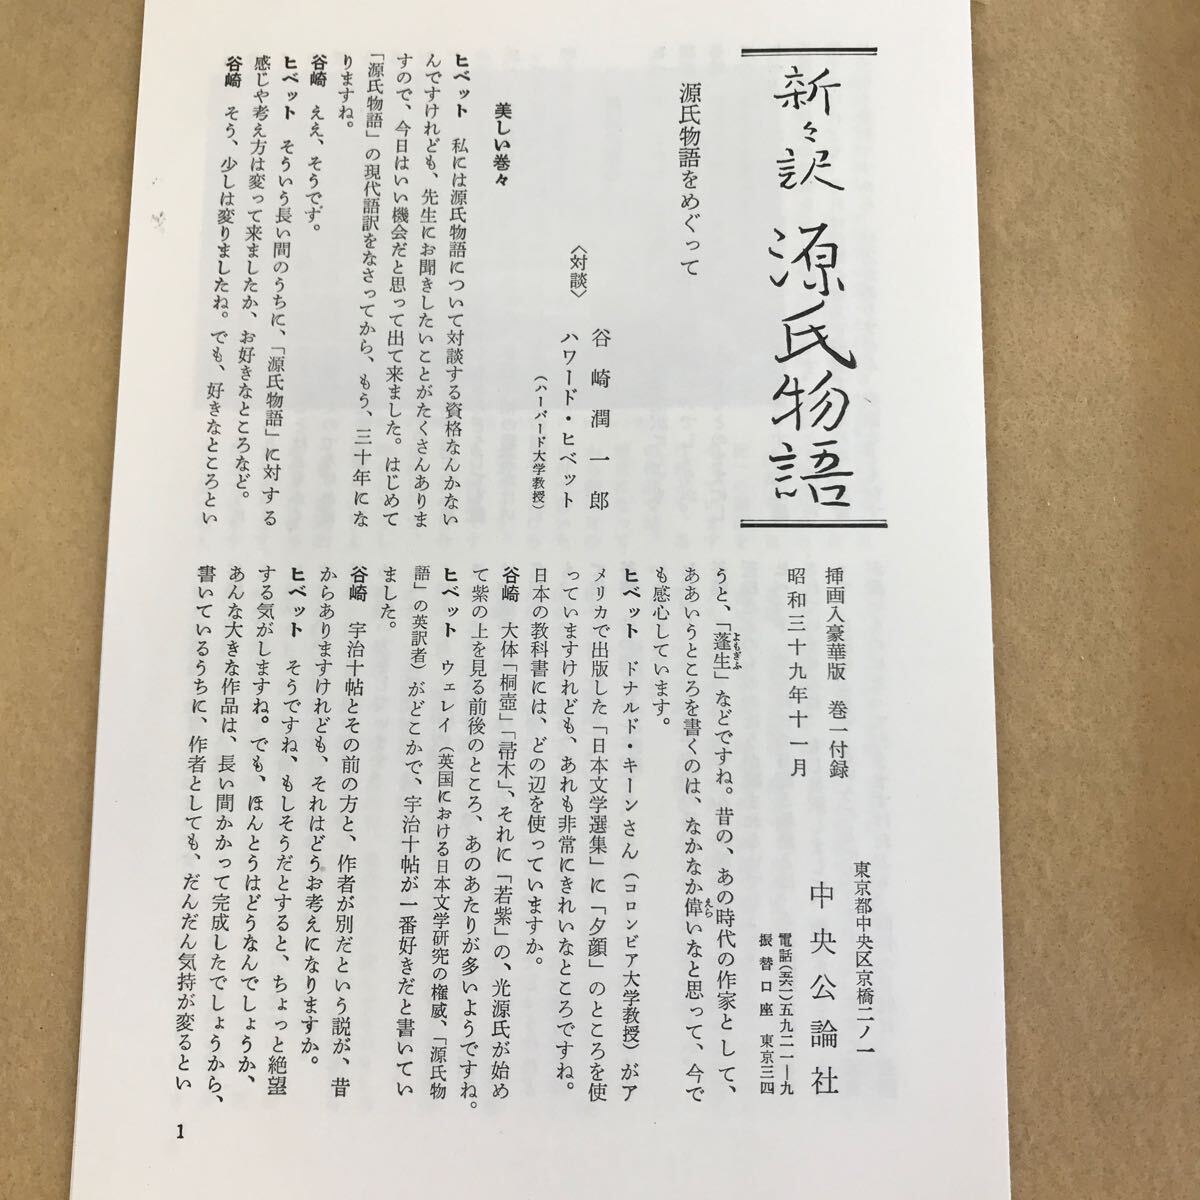 新々訳 源氏物語
挿画入豪華版 巻一付録
昭和三十九年十一月
東京都中央区京橋二ノ一
中央公論社
電話(五六一)五九二一―九
振替口座 東京三四
源氏物語をめぐって
〈対談〉
谷崎潤一郎
ハワード・ヒベット
(ハーバード大学教授)
美しい巻々
ヒベット 私には源氏物語について対談する資格なんかない
んですけれども、先生にお聞きしたいことがたくさんありま
すので、今日はいい機会だと思って出て来ました。はじめて
「源氏物語」の現代語訳をなさってから、もう、三十年にな
りますね。
谷崎 ええ、そうでず。
ヒベット そういう長い間のうちに、「源氏物語」に対する
感じや考え方は変って来ましたか、お好きなところなど。
谷崎 そう、少しは変りましたね。でも、好きなところとい
うと、「蓬生」などですね。昔の、あの時代の作家として、
よもぎふ
ああいうところを書くのは、なかなか偉いなと思って、今で
えら
も感心しています。
ヒベット ドナルド・キーンさん(コロンビア大学教授)がア
メリカで出版した「日本文学選集」に「夕顔」のところを使
っていますけれども、あれも非常にきれいなところですね。
日本の教科書には、どの辺を使っていますか。
谷崎 大体「桐壺」「帚木」、それに「若紫」の、光源氏が始め
て紫の上を見る前後のところ、あのあたりが多いようですね。
ヒベット ウェレイ(英国における日本文学研究の権威、「源氏物
語」の英訳者)がどこかで、宇治十帖が一番好きだと書いてい
ました。
谷崎 宇治十帖とその前の方と、作者が別だという説が、昔
からありますけれども、それはどうお考えになりますか。
ヒベット そうですね、もしそうだとすると、ちょっと絶望
する気がしますね。でも、ほんとうはどうなんでしょうか、
あんな大きな作品は、長い間かかって完成したでしょうから、
書いているうちに、作者としても、だんだん気持が変るとい
1